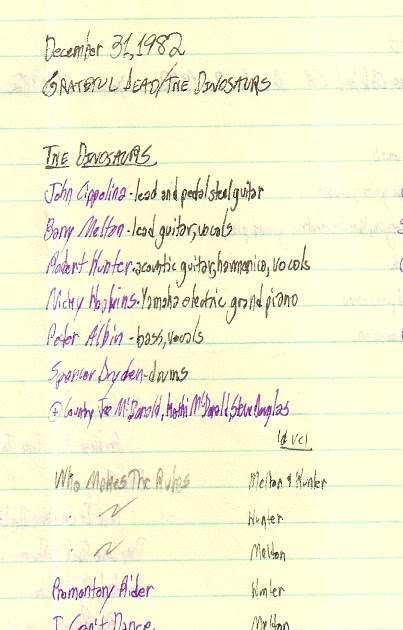 December 31, 1982
GRATEFUL DEAD/THE DINOSAURS
THE DINOSAURS
John Cippolina - lead and pedal steel guitar
Barry Melton - lead guitar, vocals
Robert Hunter - acoustic guitar, harmonica, vocals
Nicky Hopkins - Yamaha electric grand piano
Peter Albin - bass, vocals
Spencer Dryden - drums
+ Country Joe McDonald, Kathi McDonald, Steve Douglas
ld vcl
Who Makes The Rules Melton & Hunter
~ Hunter
~ Melton
Promontory Rider Hunter
I Can't Dance Melton